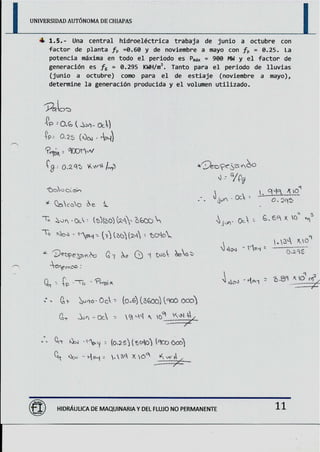 UNIVERSIDAD AUTÓNOMA DE CHIAPAS
1.5.- Una central hidroeléctrica trabaja de junio a octubre con
factor de planta fp =0.60 y de noviembre a mayo con fp = 0.25. La
potencia máxima en todo el periodo es Pmáx = 900 MW y el factor de
generación es fg = 0.295 KWH/m³. Tanto para el periodo de lluvias
(junio a octubre) como para el de estiaje (noviembre a mayo),
determine la generación producida y el volumen utilizado.
Datos
fp = 0.6 (Jun - Oct)
fp = 0.25 (Nov - May)
Pmáx = 900MW
fg = 0.295 KWH/m³
Solución
* Calculo de
TG Jun - Oct = (5)(30)(24) = 3600 h
TG Nov - May = (7)(30)(24) = 5040 h
* Despejando G y de ① y
tenemos:
G = fp TG Pmáx
∴ G Juno - Oct = (0.6)(3600)(900 000)
G Jun - Oct = 1.944 x 10⁹ KWH
∴ G Nov - May = (0.25)(5040)(900 000)
G Nov - May = 1.134 x 10⁹ KWH
* Despejando
V = G/fg
∴ V Jun - Oct = 1.944 x 10⁹ / 0.295
V Jun - Oct = 6.59 x 10⁹ m³
V Nov - May = 1.134 x 10⁹ / 0.295
V Nov - May = 3.84 x 10⁹ m³
HIDRÁULICA DE MAQUINARIA Y DEL FLUJO NO PERMANENTE 11